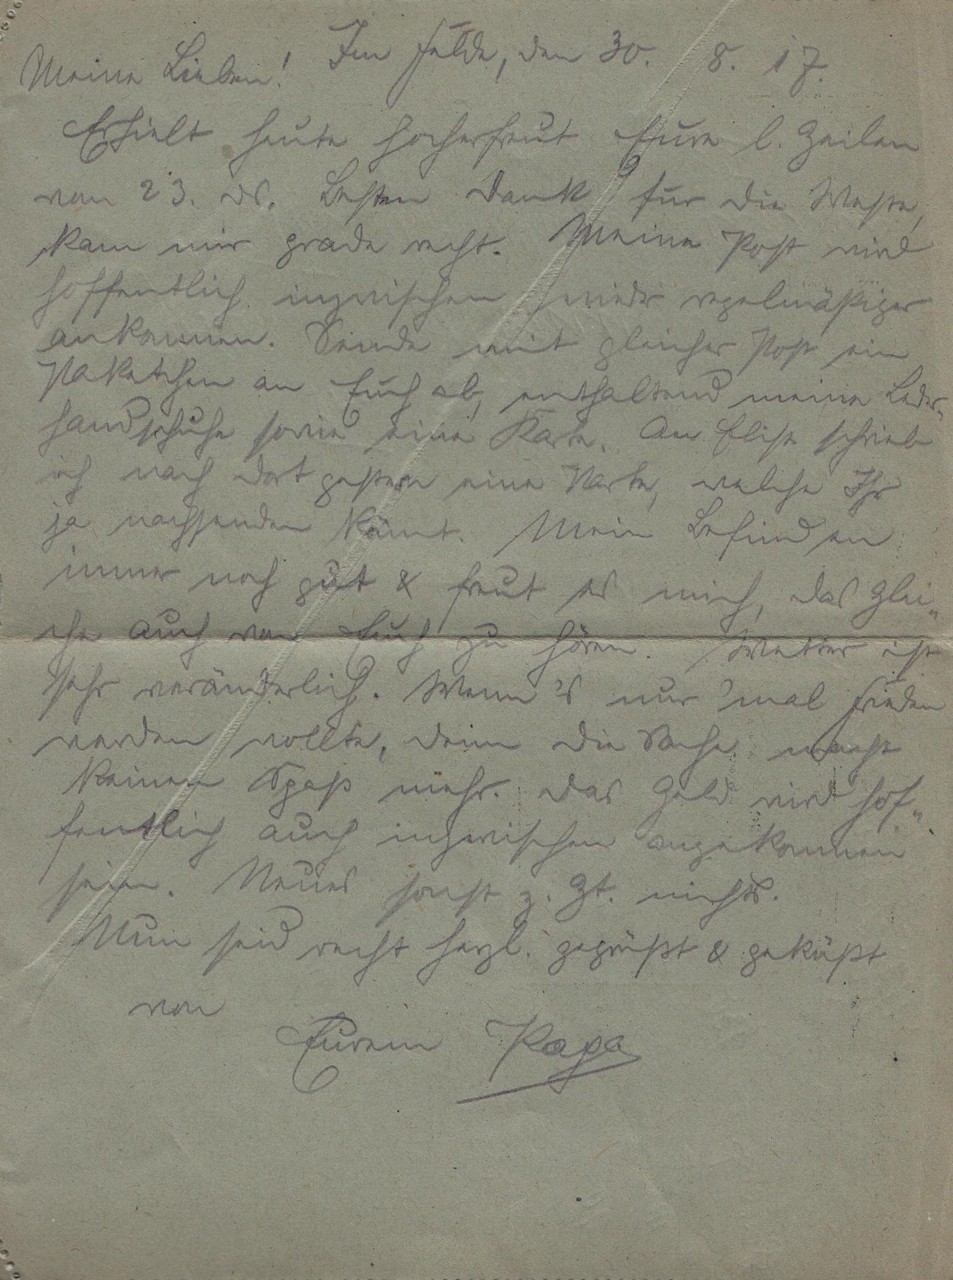 Im Felde, den 30. 8. 17.
Meine Lieben!
Erhielt heute hocherfreut Eure l. Zeilen
vom 23. ds. Besten Dank für die Weste,
kam mir grade recht. Meine Post wird
hoffentlich inzwischen wieder regelmäßiger
ankommen. Sende mit gleicher Post ein
Paketchen an Euch ab, enthaltend meine Leder-
handschuhe sowie eine Karte. An Elise schrieb
ich nach dort gestern eine Karte, welche Ihr
ja nachsenden könnt. Mein Befinden
immer noch gut & freut es mich, das Glei-
che auch von Euch zu hören. Wetter ist
sehr veränderlich. Wenn's nur 'mal Frieden
werden wollte, denn die Sache macht
keinen Spaß mehr. Das Geld wird hof-
fentlich auch inzwischen angekommen
sein. Neues sonst z. Zt. nichts.
Nun seid recht herzl. gegrüßt & geküßt
von
Eurem Papa